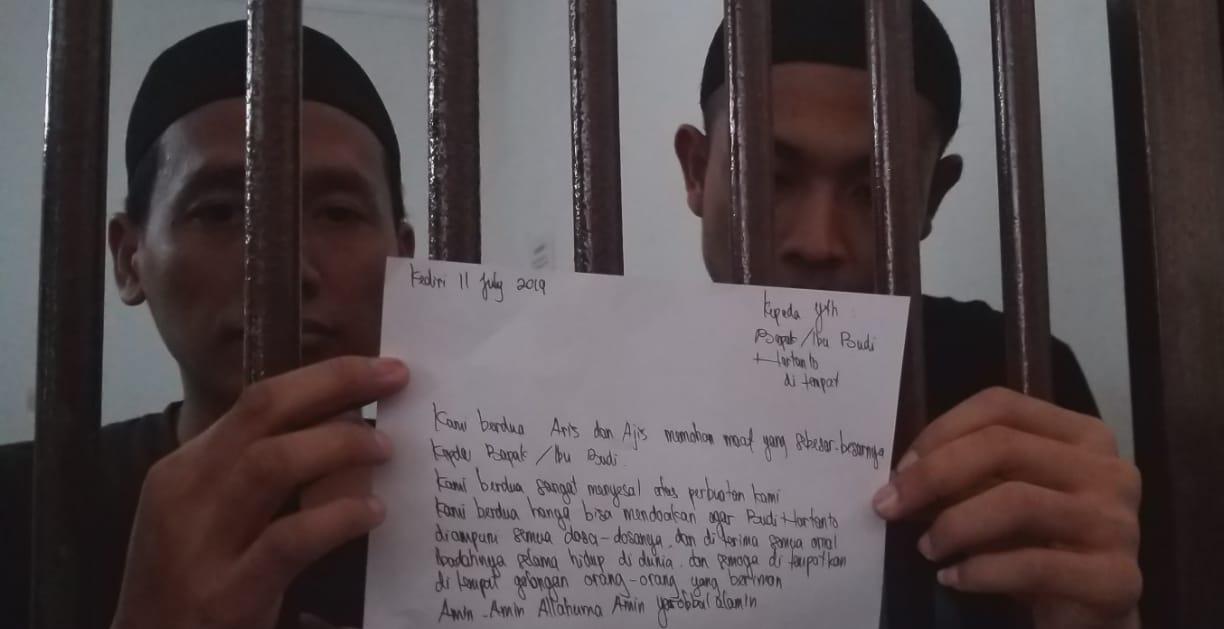 Kediri 11 July 2019
Kepada yth
Bapak/Ibu Budi
Hartanto
di tempat
Kami berdua Aris dan Ajis memohon maaf yang sebesar-besarnya
Kepda Bapak /Ibu Budi.
Kami berdua sangat menyesal atas perbuatan kami
Kami berdua hanya bisa mendoakan agar Budi Hartanto
diampuni semua dosa-dosanya. dan di terima semua amal
ibadahnya selama hidup di dunia. dan semoga di tempatkan
di tempat golongan orang-orang yang beriman
Amin-Amin Allahuma Amin yarobbal alamin